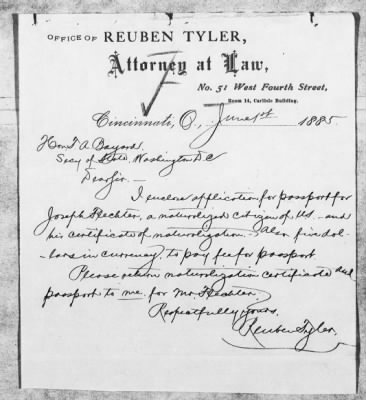 OFFICE OF REUBEN TYLER,
Attorney at Law,
No. 51 West Fourth Street,
Room 14, Carlisle Building.
Cincinnati, O, June 1st 1885
Hon T. A. Bayard.
Secy of State, Washington D C
Dear Sir –
I enclose application for passport for
Joseph Hechler, a naturalized citizen of U.S. – and
his certificate of naturalization – Also five dol-
lars in currency, to pay fee for passport
Please return naturalization certificate and
passport to me for Mr. Hechler.
Respectfully yours.
Reuben Tyler.